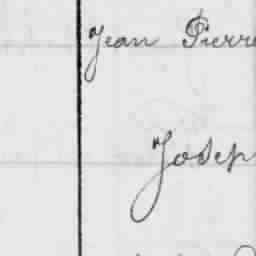 Jean Pierre
Josep